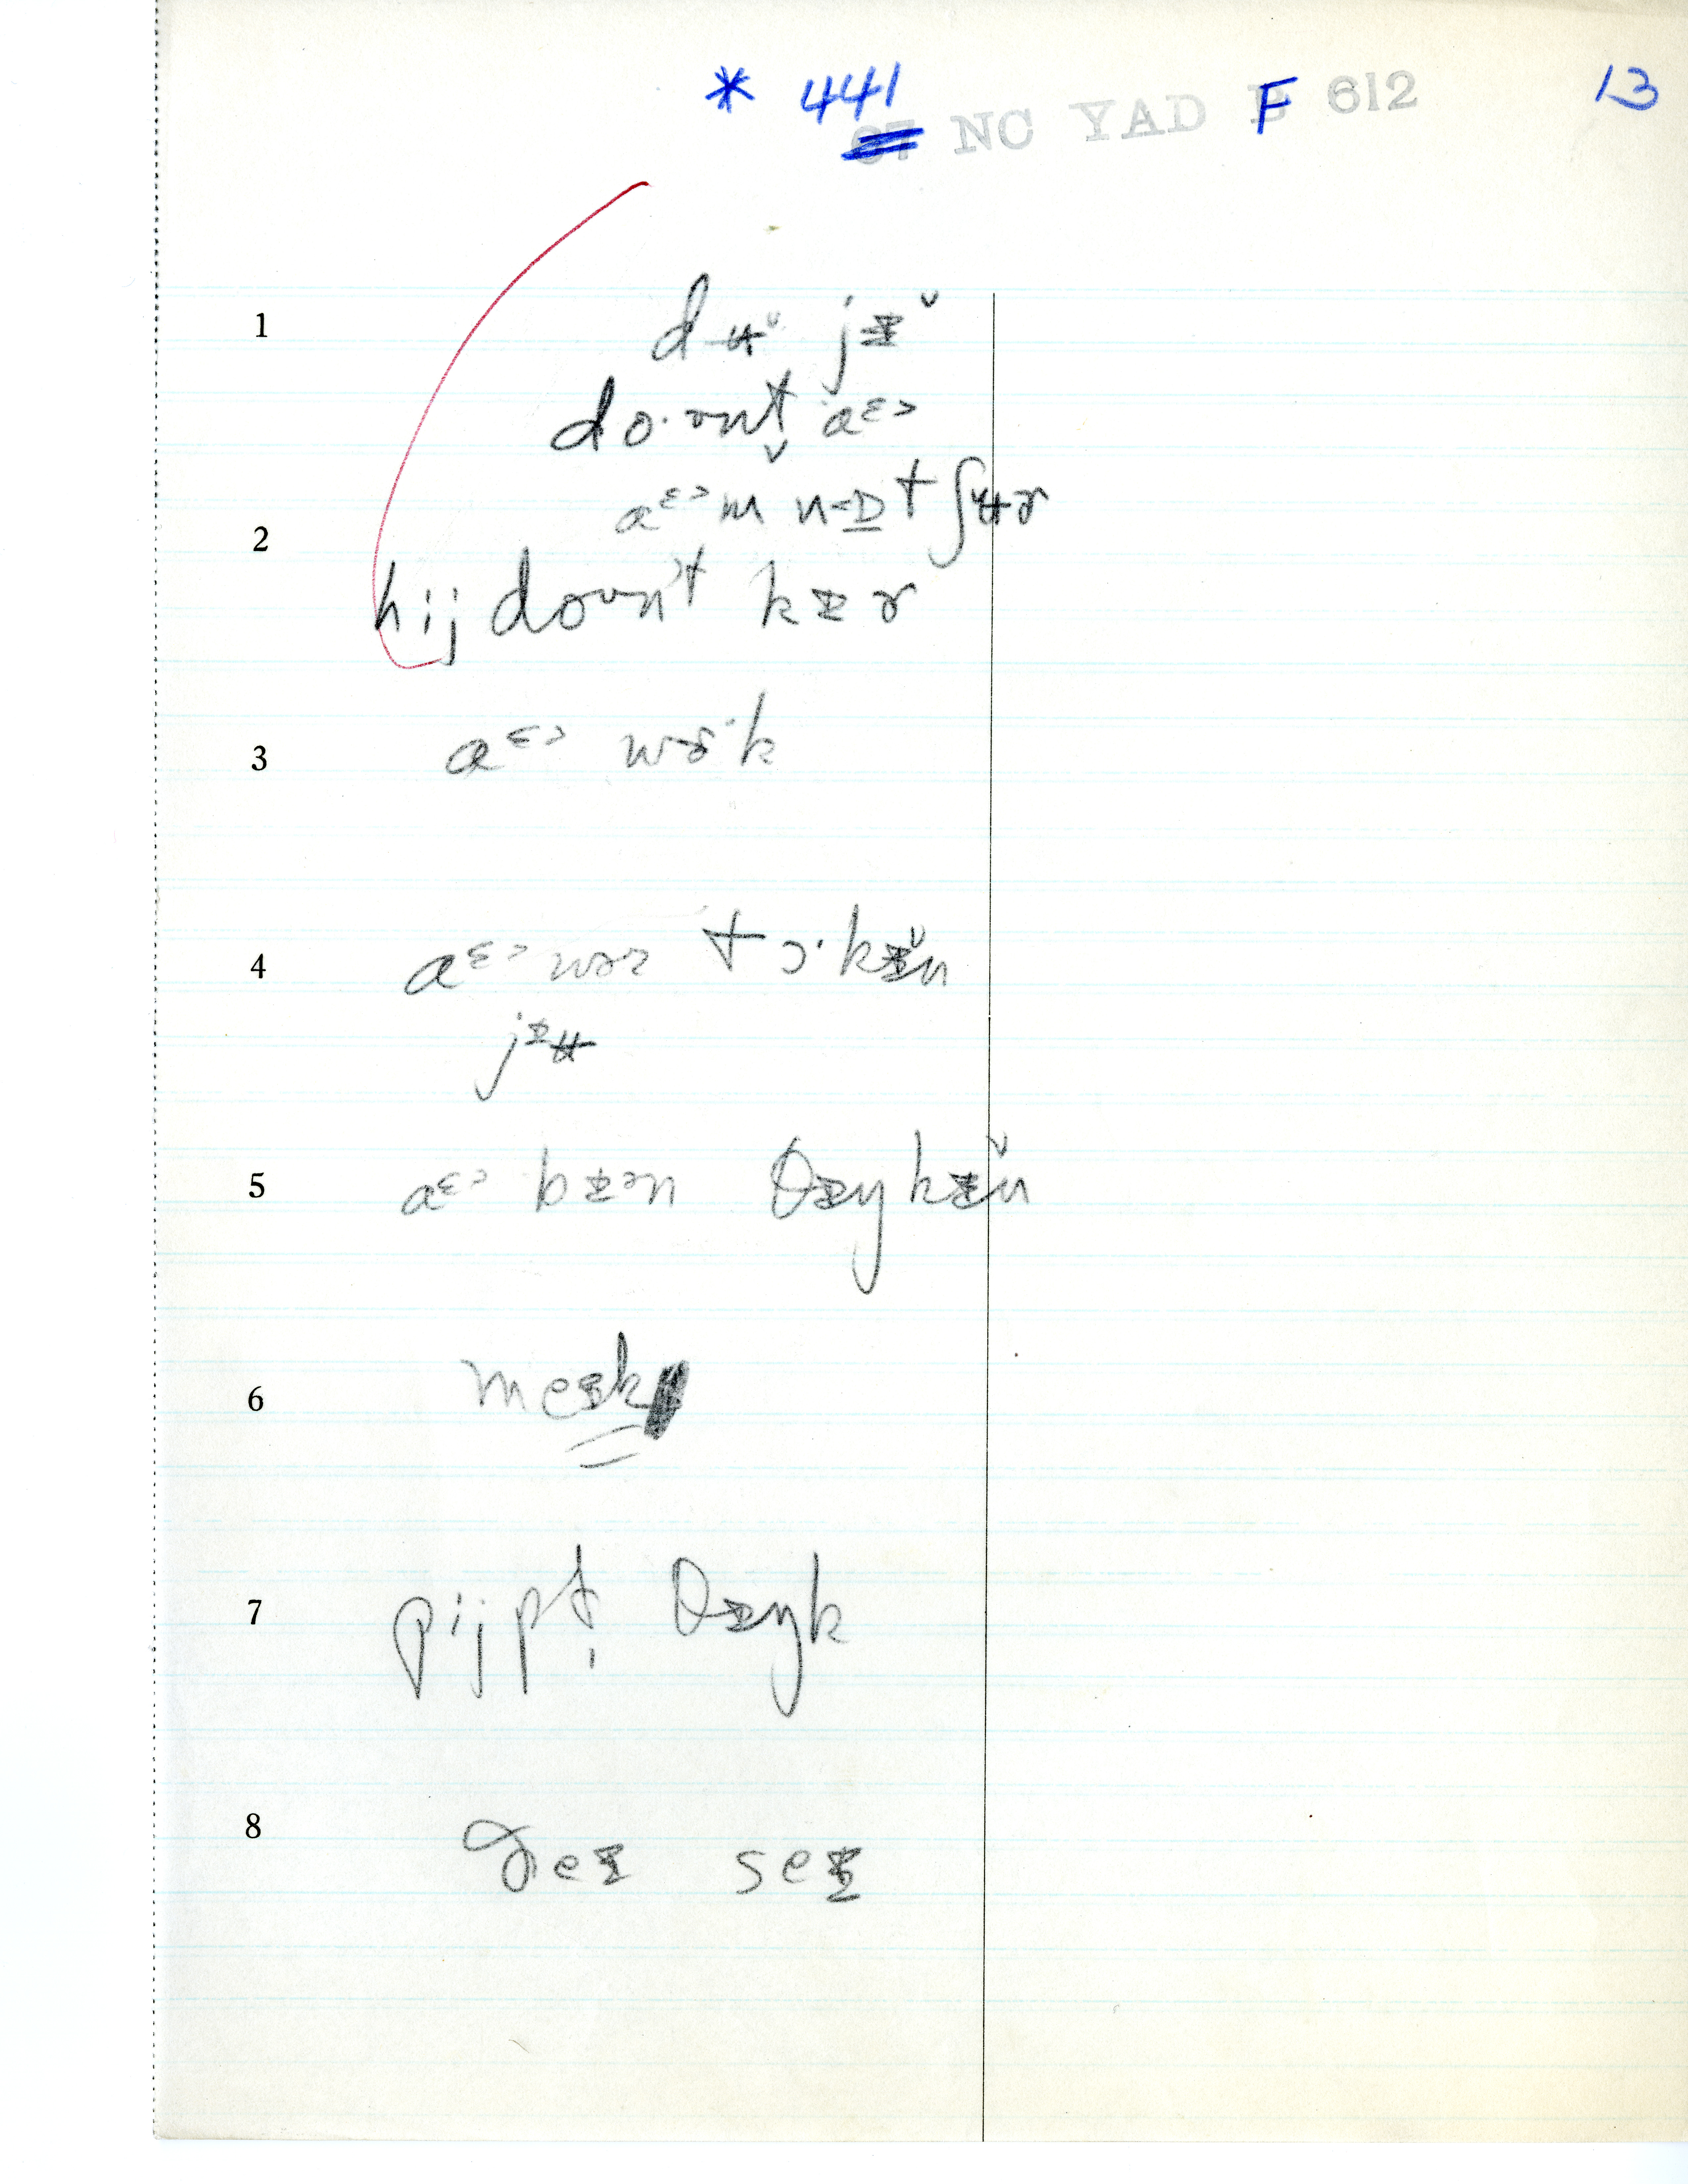 * 441
NC YAD F 612 13
1 dʉ̆ jɪ̵̆
do·ʊnt̬ aᵋ˃
aᵋ˃m n-ɒ̲t ʃʉɚ
2
hij doʊn't kɪ̵ɚ
3 aᵋ˃ wɚ·k
4 aᵋ˃ wəz tɔ·kɪ̵̆n
jɪ̵ʉ
5 aᵋ˃ bɪ̵ən θɪ̵ŋkɪ̵̆n
6 meɪ̵k
7 pijpł̩ θɪ̵ŋk
8 ðeɪ̵ seɪ̵